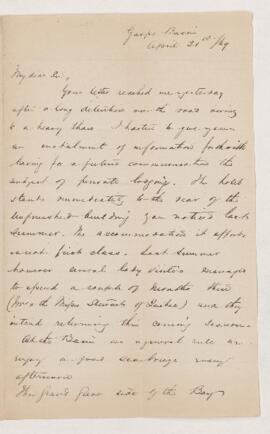 Gaspé Basin
April 21st /69
My dear Sir,
Your letter reached me yesterday
after a long detention on the road owing
to a heavy thaw. I hasten to give you
an instalment of information forthwith
leaving for a future communication the
subject of private lodging. The hotel
stands immediately to the rear of the
unfinished building you noticed last
summer. The accommodation it affords
is not first class. Last summer
however several lady visitors managed
to spend a couple of months there
(Mrs & the Misses Stewart of Quebec) and they
intend returning this coming season.
At the Basin as a general rule we
enjoy a good sea breeze every
afternoon
The Grand Grève side of the Bay